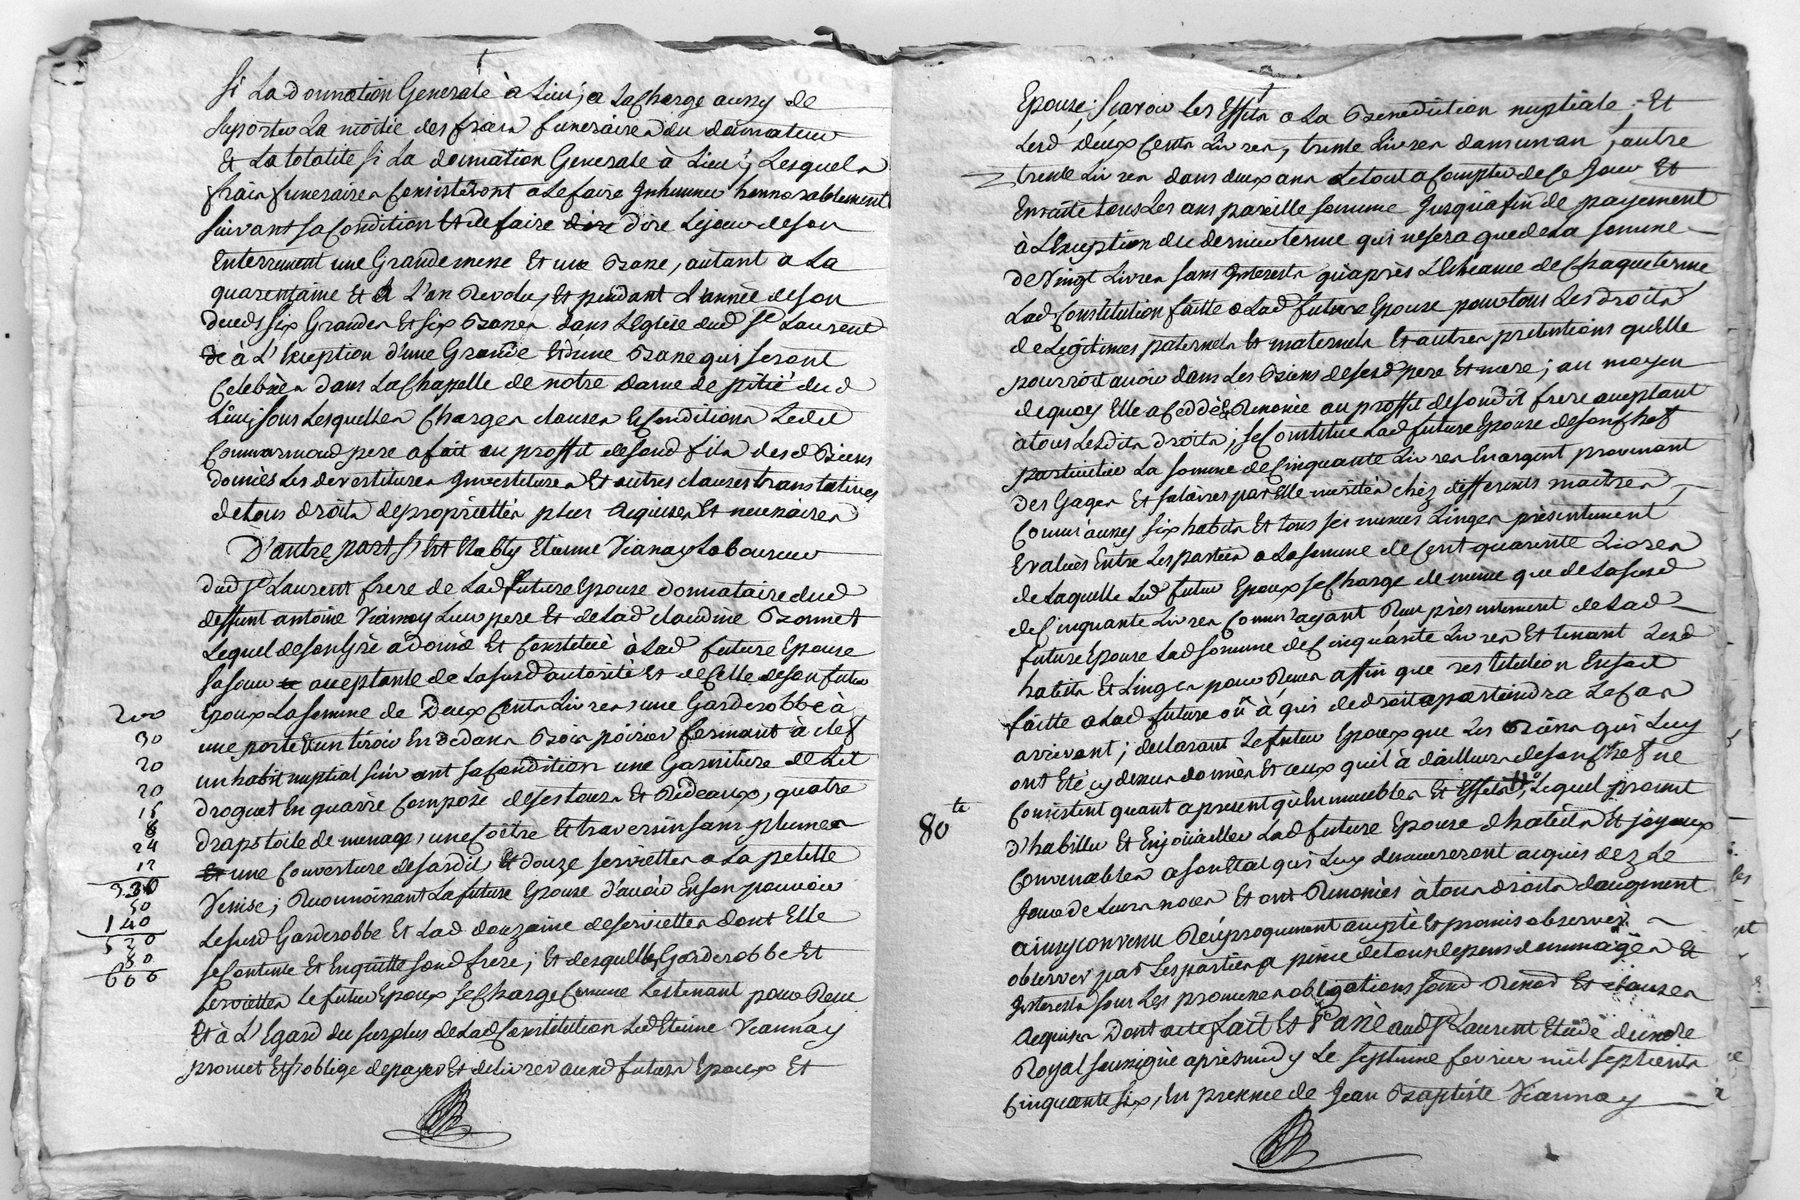 si La donnation Generale à Lieu; a La Charge aussy de
suporter La moitié des fraix funeraires du donnateur
Et La totalité si La donnation Generale à Lieu; Lesquels
fraix funeraires Consisteront a Le faire Inhumer honnorablement
suivant sa Condition Et de faire dire Le jour de son
Enterrement une Grande messe Et une Basse, autant a La
quarentaine Et à L'an Revolu, Et pendant L'année de son
deceds six Grandes Et six Basses dans L'Eglise dud St Laurent
à L'Exception d'une Grande Et d'une Basse qui seront
Celebrées dans La Chapelle de notre dame de pitié dud
Lieu; sous Lesquelles Charges clauses Et Conditions Ledit
pere a fait au proffit de sond fils desd Biens
donnés Les devestitures Investitures Et autres clauses translatives
de tous droits de proprietté plus Requises Et necessaires
D'autre part s'Est Etably Etienne Vianay Laboureur
dud St Laurent frere de Lad future Epouse donnataire dud
deffunt antoine Viannay Leur pere Et de Lad claudine Bonnet
Lequel de son Gré a donné Et Constitué à Lad future Epouse
sa sœur acceptante de La susd autorité Et de Celle de son futur
Epoux La somme de Deux Cents Livres, une Garderobbe à
une porte Et un tiroir En dedans Bois poirier fermant à clef
un habit nuptial suivant sa Condition une Garniture de Lit
droguet En quarré Composé de ses tours Et Rideaux, quatre
draps toile de menage, une Coitre Et traversin sans plumes
une Couverture de sardit, Et douze serviettes a La petitte
Venise; Reconnoissant La future Epouse d'avoir En son pouvoir
Le susd Garderobbe Et Lad douzaine de serviettes dont Elle
se Contente Et En quitte sond frere; Et desquelles Garderobbe Et
serviettes Le futur Epoux se Charge Comme Les tenant pour Reçu
Et à L'Egard du surplus de Lad Constitution Led Etienne Viannay
promet Et s'oblige de payer Et delivrer auxd futurs Epoux Et
200
30
20
20
15
8
24
12
330
50
140
520
80
600
Epouse; scavoir Les Effets a La Benediction nuptiale; Et
Lesd Deux Cents Livres, trente Livres dans un an, autre
trente Livres dans deux ans Le tout a Compter de Ce Jour Et
Ensuite tous Les ans pareille somme Jusqu'a fin de payement
à L'Exception du dernier terme qui ne sera que de La somme
de Vingt Livres sans Interests qu'après L'Echeance de Chaque terme
Lad Constitution faitte a Lad future Epouse pour tous Les droits
de Legitimes paternels Et maternels Et autres pretentions qu'elle
pourroit avoir dans Les Biens de sesd pere Et mere; au moyen
de quoy Elle a Cedé Et Renoncé au proffit de sondit frere acceptant
à tous Lesdits droits; se Constitue Lad future Epouse de son chef
particulier La somme de Cinquante Livres En argent provenant
des Gages Et salaires par Elle merités chéz differents maitres
Comm'aussy six habits Et tous ses menus Linges présentement
Evalués Entre Les parties a La somme de Cent quarente Livres
de Laquelle Led futur Epoux se Charge de meme que de La susd
de Cinquante Livres Comm'ayant Reçu présentement de Lad
future Epouse Lad somme de Cinquante Livres Et tenant Lesd
habits Et Linges pour Reçus affin que restitution En soit
faitte a Lad future ou à qui de droit apartiendra Le Cas
arrivant; declarant Le futur Epoux que Les Biens qui Luy
ont Eté cy dessus donnés Et Ceux qu'il à d'ailleurs de son Chef ne
Consistent quant a present qu'En meubles Et Effets, Lequel promet
80 tt
d'habiller Et Enjoüailler Lad future Epouse d'habits Et joyaux
Convenables a son Etat qui Luy demeureront acquis dez Le
Jour de Leurs noces Et ont Renoncés à tous droits d'augment
ainsy convenu Réciproquement accepté Et promis observer
observer par Les parties a peine de tous depens dommages Et
Interests sous Les promesses obligations soumd Renond Et clauses
Requises Dont acte fait Et Passé aud St Laurent Etude du nore
Royal soussigné après midy Le septieme fevrier mil sept cents
Cinquante six, En presence de Jean Baptiste Viannay